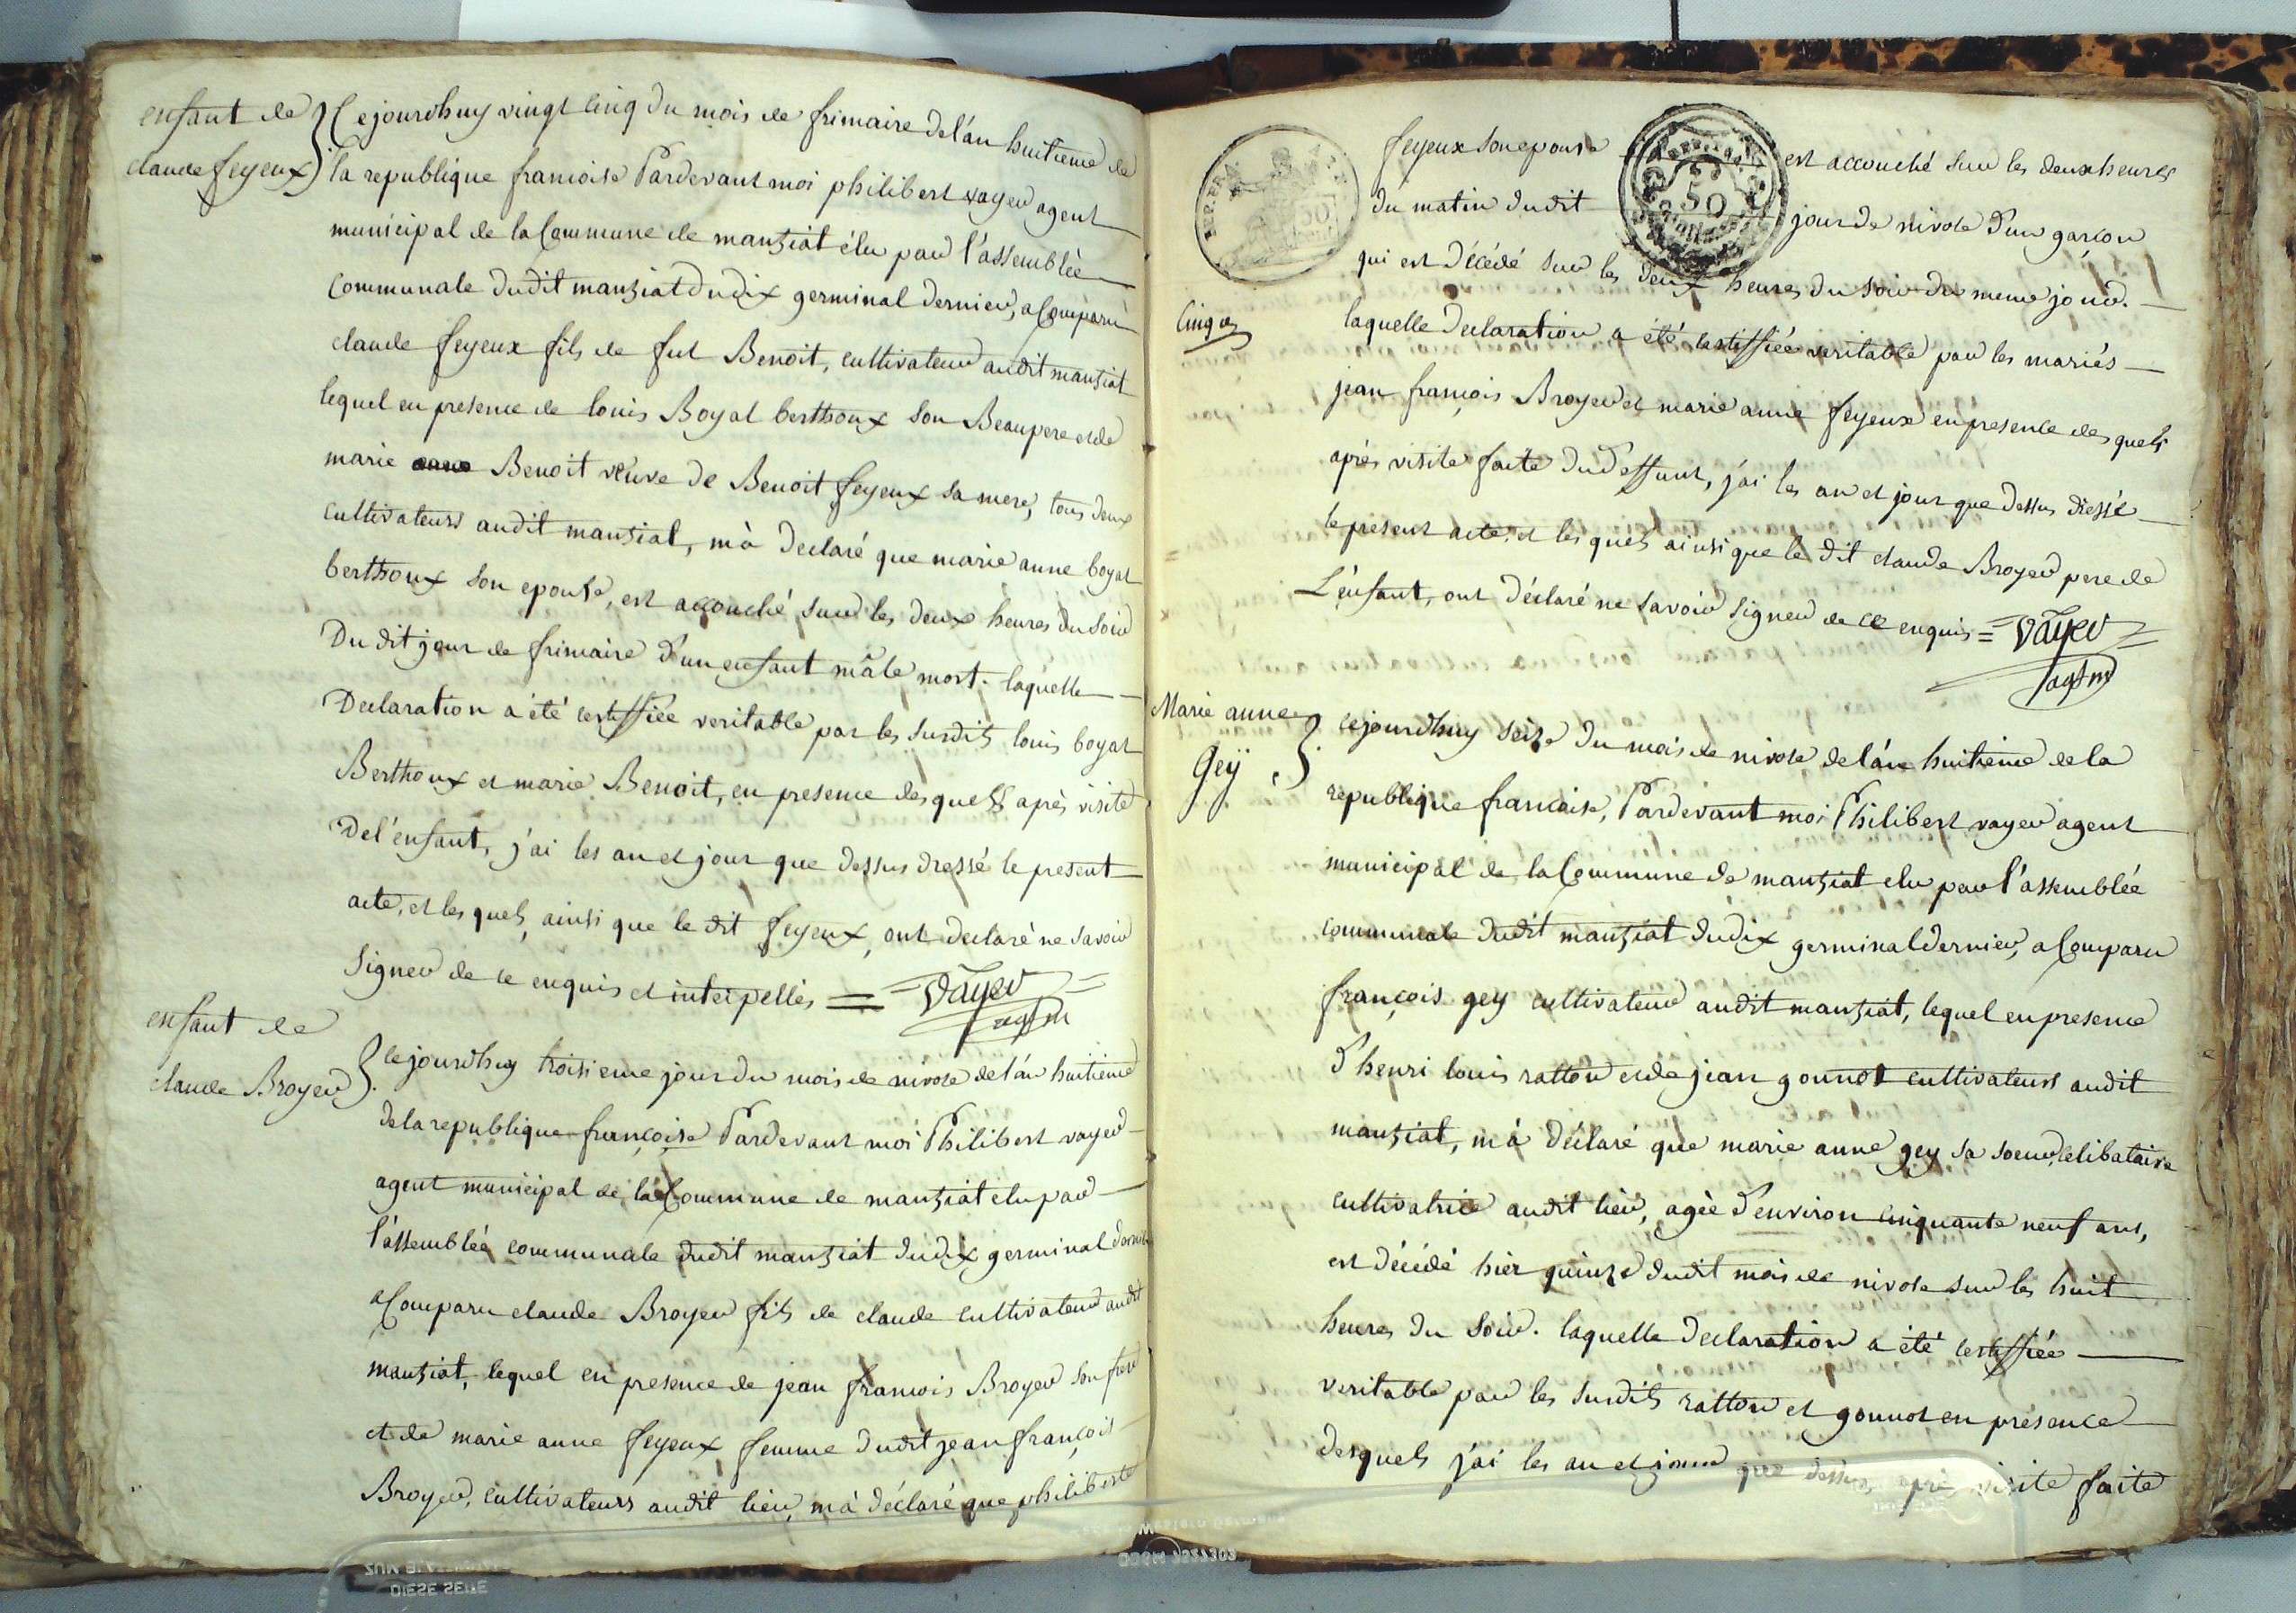 enfant de
claude feyeux
Cejourdhuy vingt cinq du mois de frimaire de l'an huitieme de
la republique francoise Pardevant moi philibert vayer agent
municipal de la Commune de manziat élu par l'assemblée
communale dudit manziat du dix germinal dernier, a Comparu
claude feyeux fils de fut Benoit, cultivateur audit manziat
lequel en presence de louis Boyat berthoux son Beaupere et de
marie Benoit veuve de Benoit feyeux sa mere, tous deux
cultivateurs audit manziat, m'à declaré que marie anne boyat
berthoux son epouse, est accouché sur les deux heures du soir
Du dit jour de frimaire d'un enfant mâle mort. laquelle
Declaration a été certiffiée veritable par les susdits louis boyat
Berthoux et marie Benoit, en presence desquels après visite
De l'enfant, j'ai les an et jour que dessus dressé le present
acte, et lesquels, ainsi que le dit feyeux, ont declaré ne savoir
signer de ce enquis et interpellés = vayer
agt m
enfant de
claude Broyer
cejourdhuy troisieme jour du mois de nivose de l'an huitieme
de la republique françoise Pardevant moi Philibert vayer
agent municipal de la Commune de manziat elu par
l'assemblée communale dudit manziat du dix germinal dernier
a Comparu claude Broyer fils de claude cultivateur audit
manziat, lequel en presence de jean francois Broyer son frere
et de marie anne feyeux femme dudit jean françois
Broyer, cultivateurs audit lieu, m'à déclaré que philiberte
REP. FRA.
50
feyeux son epouse est accouché sur les deux heures
du matin dudit jour de nivose d'un garçon
qui est décédé sur les deux heures du soir du meme jour.
laquelle declaration a été certiffiée veritable par les mariés
jean françois Broyer et marie anne feyeux en presence des quels
après visite faite du deffunt, j'ai les an et jour que dessus dressé
le present acte, et lesquels ainsi que le dit claude Broyer pere de
L'enfant, ont déclaré ne savoir signer de ce enquis = vayer
agt m
Marie anne
Gey
cejourdhuy seize du mois de nivose de l'an huitieme de la
republique francaise, Pardevant moi Philibert vayer agent
municipal de la Commune de manziat elu par l'assemblée
communale dudit manziat du dix germinal dernier, a Comparu
françois gey cultivateur audit manziat, lequel en presence
d'henri louis ratton et de jean gonnot cultivateurs audit
manziat, m'à déclaré que marie anne gey sa soeur, celibataire
cultivatrice audit lieu, agée d'environ cinquante neuf ans,
est décédé hier quinze dudit mois de nivose sur les huit
heures du soir. laquelle declaration a été certiffiée
veritable par les susdits ratton et gonnot en présence
desquels j'ai les an et jour que dessus, après visite faite